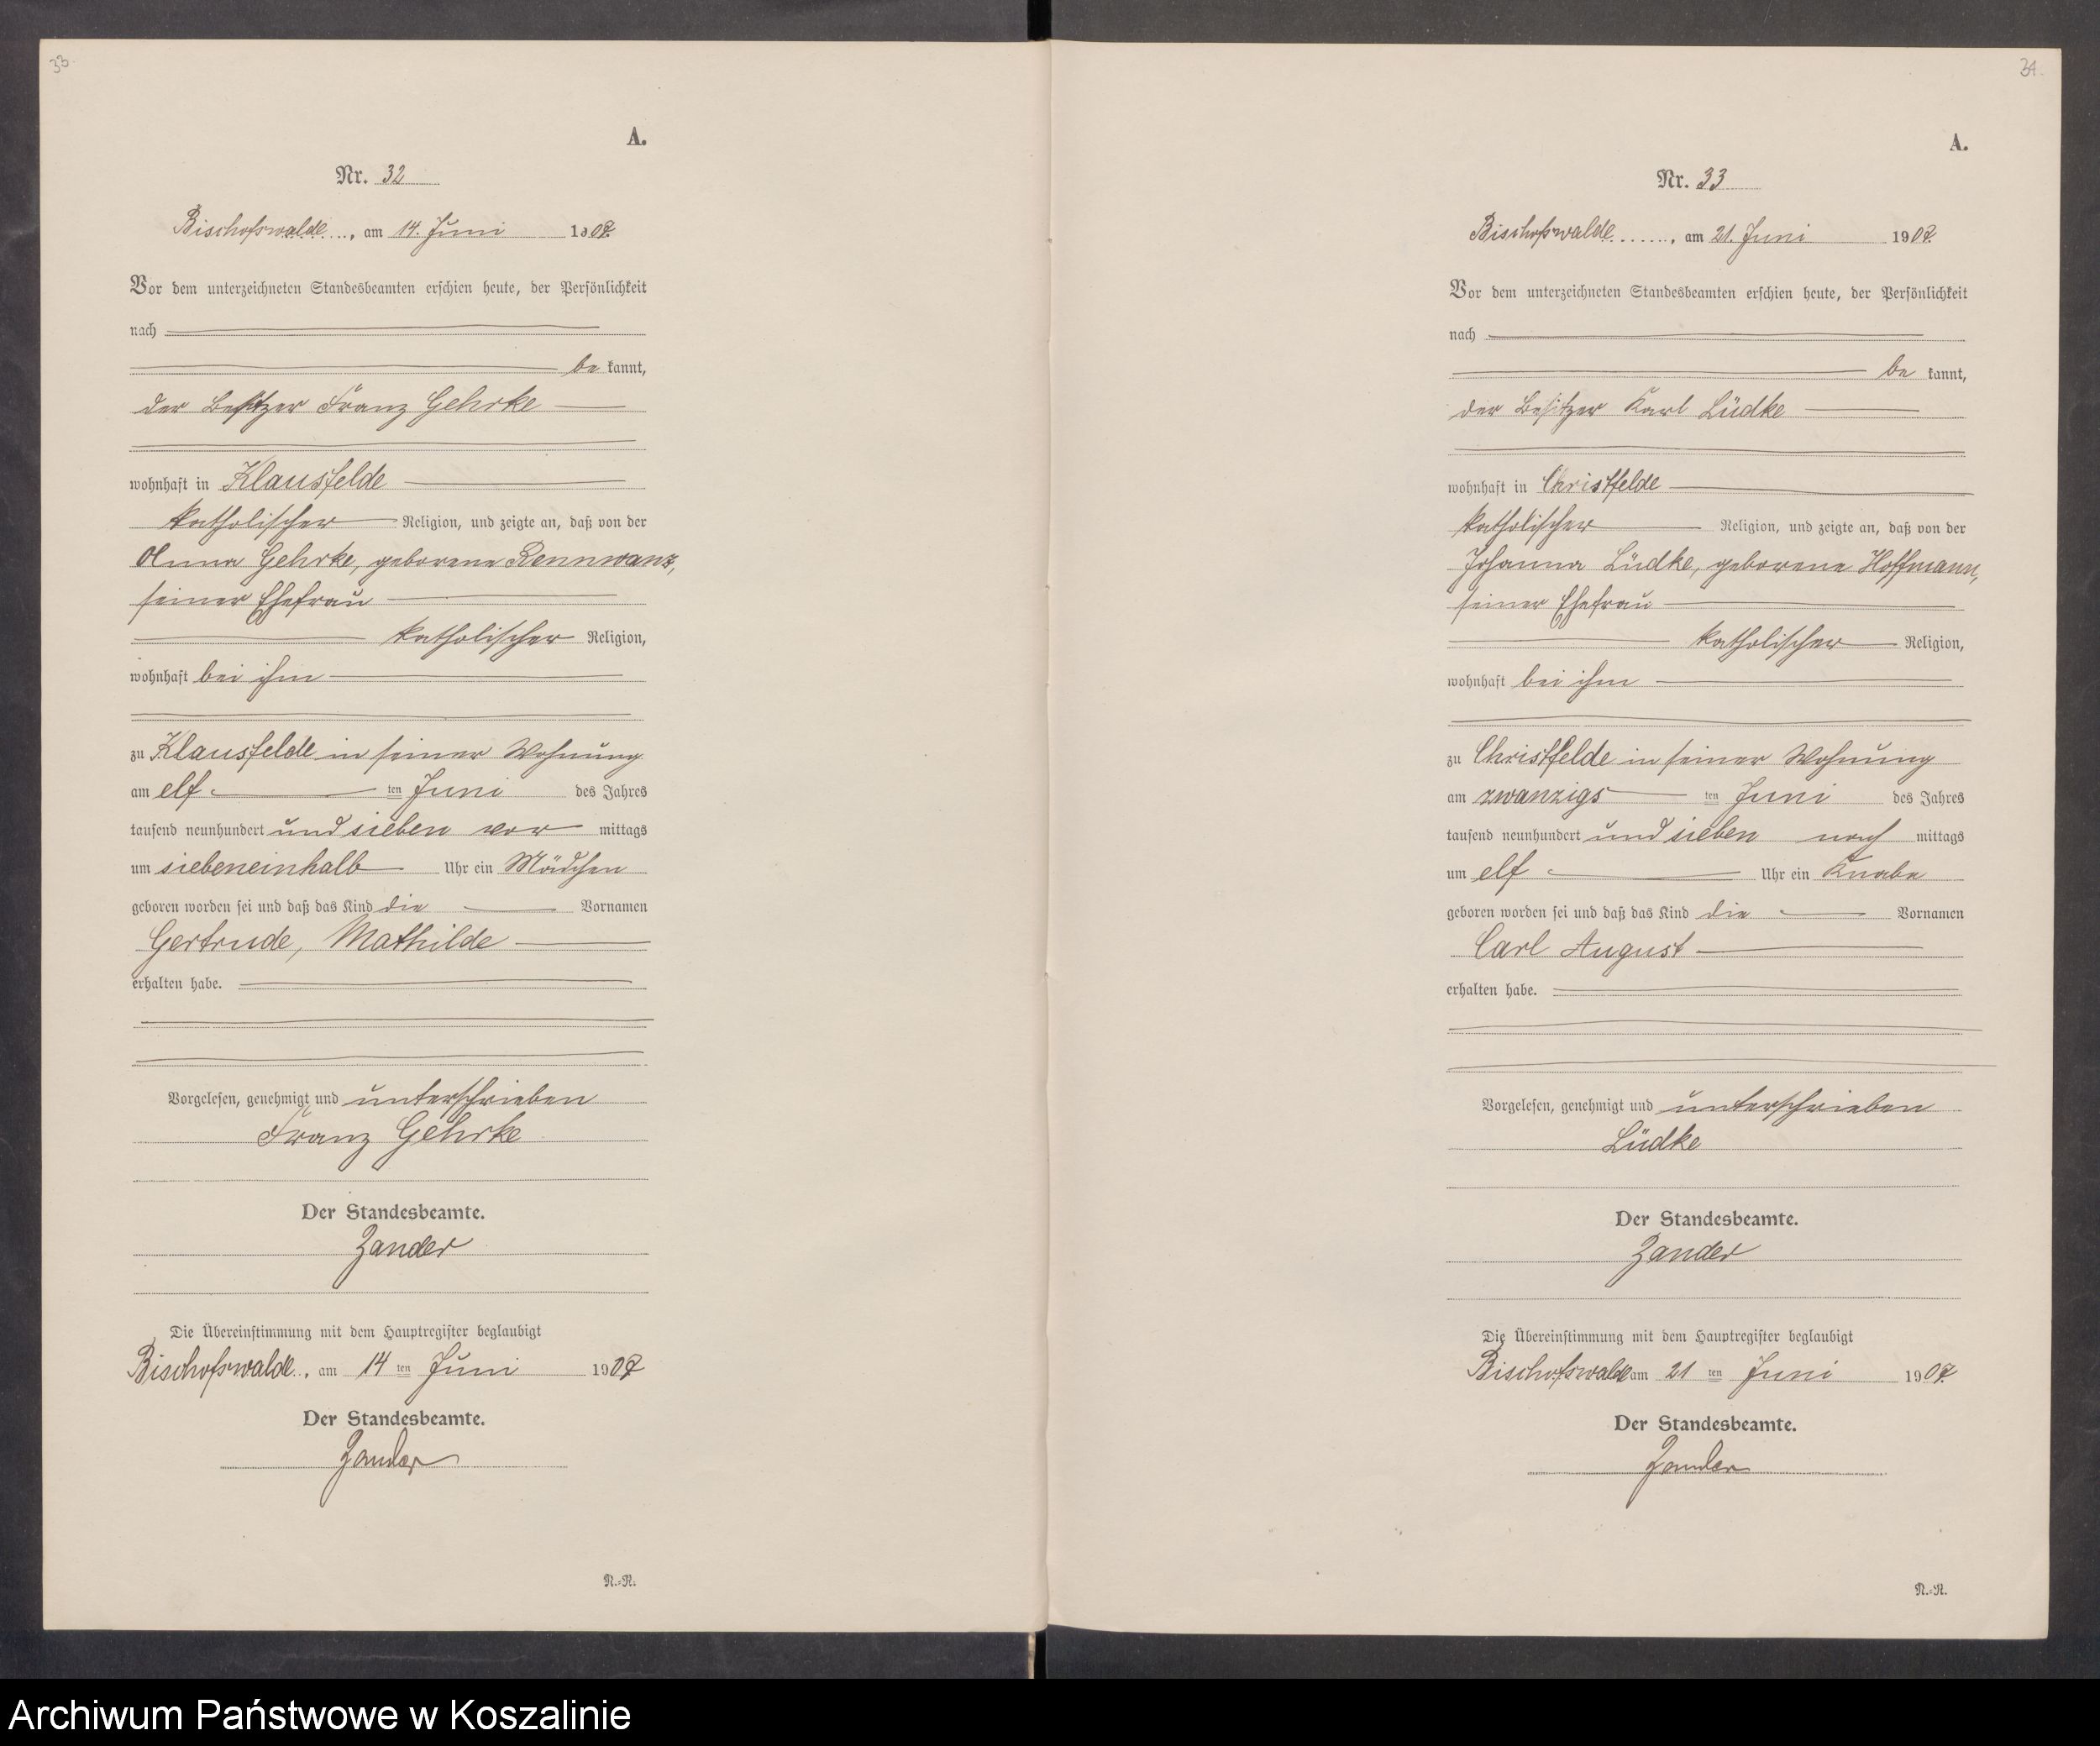 33.
A.
Nr. 32
Bischofswalde, am 14. Juni 1907.
Vor dem unterzeichneten Standesbeamten erschien heute, der Persönlichkeit
nach
be kannt,
der Besitzer Franz Gehrke
wohnhaft in Klausfelde
katholischer Religion, und zeigte an, daß von der
Anna Gehrke, geborene Rennwanz,
seiner Ehefrau
katholischer Religion,
wohnhaft bei ihm
zu Klausfelde in seiner Wohnung
am elf ten Juni des Jahres
tausend neunhundert und sieben vor mittags
um siebeneinhalb Uhr ein Mädchen
geboren worden sei und daß das Kind die Vornamen
Gertrude, Mathilde
erhalten habe.
Vorgelesen, genehmigt und unterschrieben
Franz Gehrke
Der Standesbeamte.
Zander
Die Übereinstimmung mit dem Hauptregister beglaubigt
Bischofswalde, am 14 ten Juni 1907
Der Standesbeamte.
Zander
N.=R.
34.
A.
Nr. 33
Bischofswalde, am 21. Juni 1907.
Vor dem unterzeichneten Standesbeamten erschien heute, der Persönlichkeit
nach
be kannt,
der Besitzer Karl Lüdke
wohnhaft in Christfelde
katholischer Religion, und zeigte an, daß von der
Johanna Lüdke, geborene Hoffmann,
seiner Ehefrau
katholischer Religion,
wohnhaft bei ihm
zu Christfelde in seiner Wohnung
am zwanzigs ten Juni des Jahres
tausend neunhundert und sieben nach mittags
um elf Uhr ein Knabe
geboren worden sei und daß das Kind die Vornamen
Carl August
erhalten habe.
Vorgelesen, genehmigt und unterschrieben
Lüdke
Der Standesbeamte.
Zander
Die Übereinstimmung mit dem Hauptregister beglaubigt
Bischofswalde am 21 ten Juni 1907.
Der Standesbeamte.
Zander
N.=R.
Archiwum Państwowe w Koszalinie